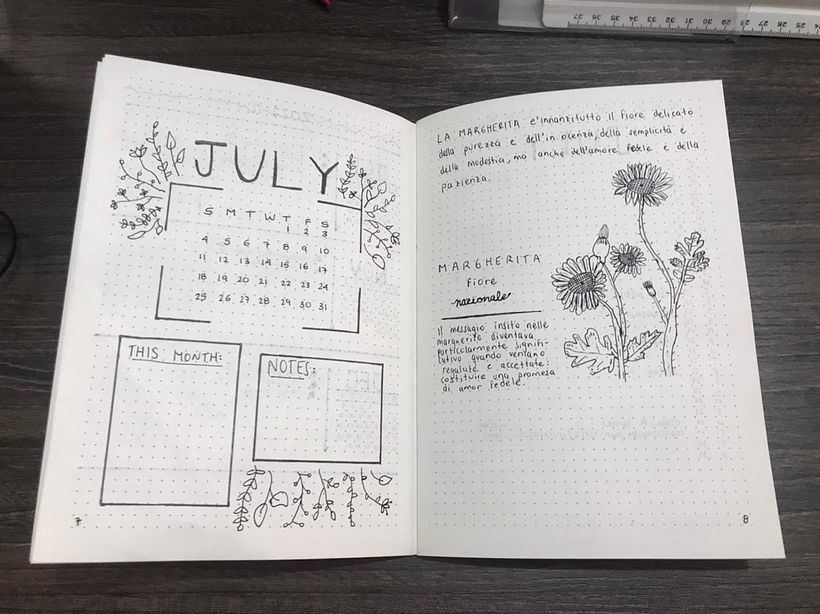 JULY
S M T W T F S
1 2 3
4 5 6 7 8 9 10
11 12 13 14 15 16 17
18 19 20 21 22 23 24
25 26 27 28 29 30 31
THIS MONTH:
NOTES:
7
LA MARGHERITA e'innanzitutto il fiore delicato
della purezza e dell'in ocenza, della semplicità e
della modestia, ma anche dell'amore fedele e della
pazienza.
MARGHERITA
Fiore
nazionale
Il messagio insito nelle
margherite diventava
particolarmente signifi-
cativo quando venivano
regalate e accettate:
costituire una promesa
di amor fedele
8
37 36 35 34 33 32 31 30 29 28 27 26 25 24